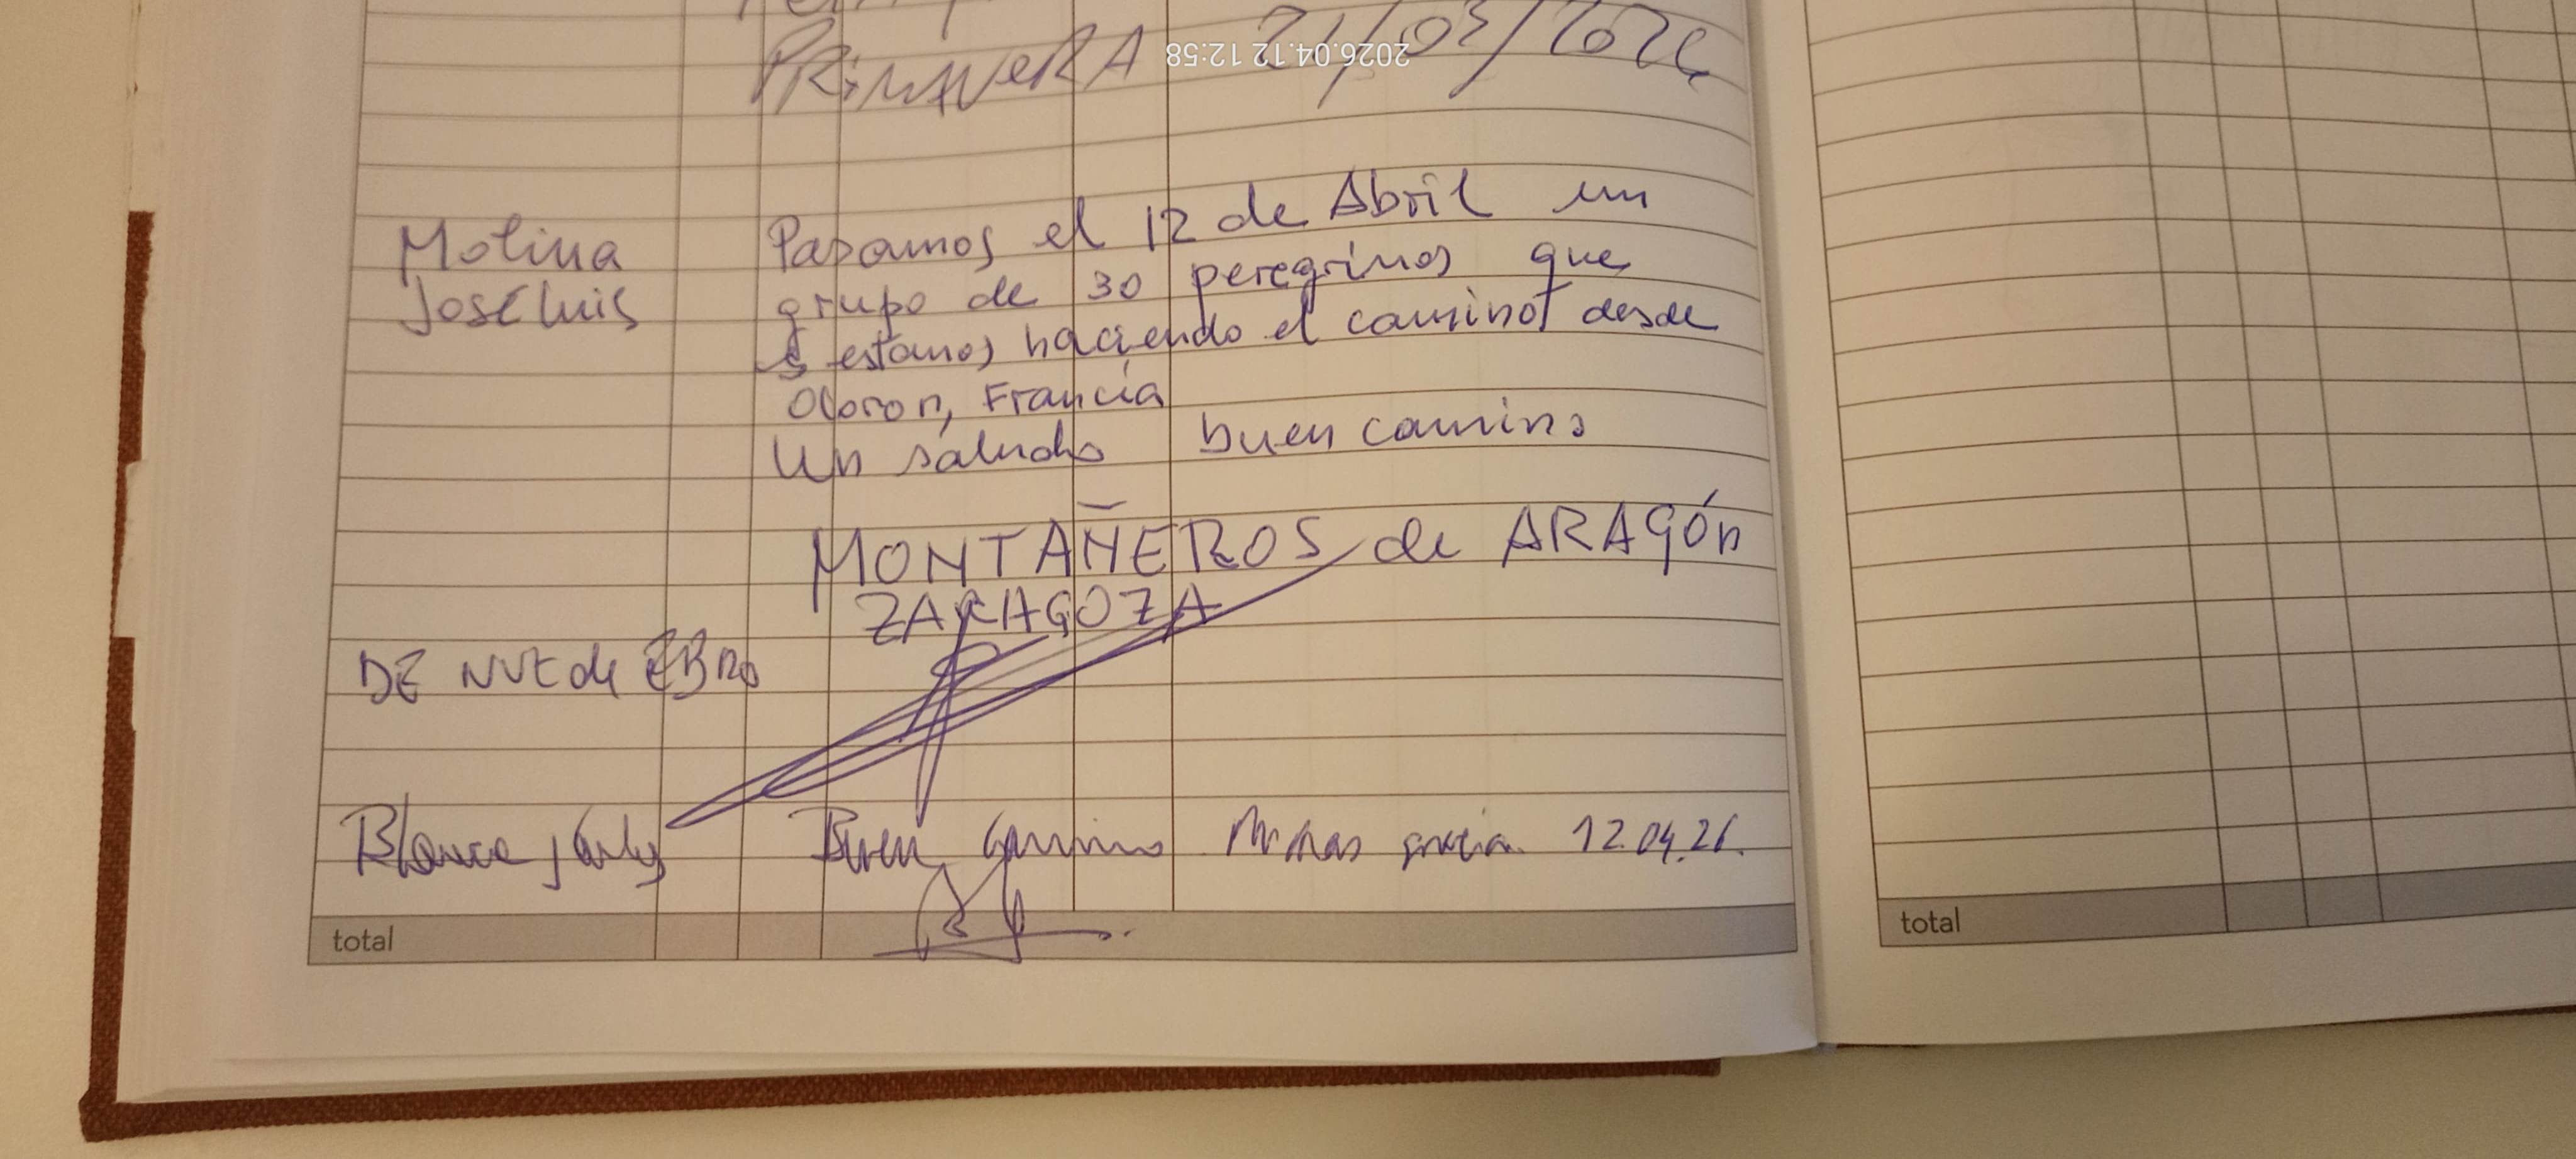 PRiMAVERA 21/03/202
2026.04.12 12:58
Molina
José Luis
Pasamos el 12 de Abril un
grupo de 30 peregrinos que
estamos haciendo el camino desde
Oloron, Francia
Un saludo buen camino
MONTAÑEROS de ARAGÓN
ZARAGOZA
DE NUEZ de EBRO
Blanca y Carlos
Buen Camino Muchas gracias. 12.04.26.
total
total